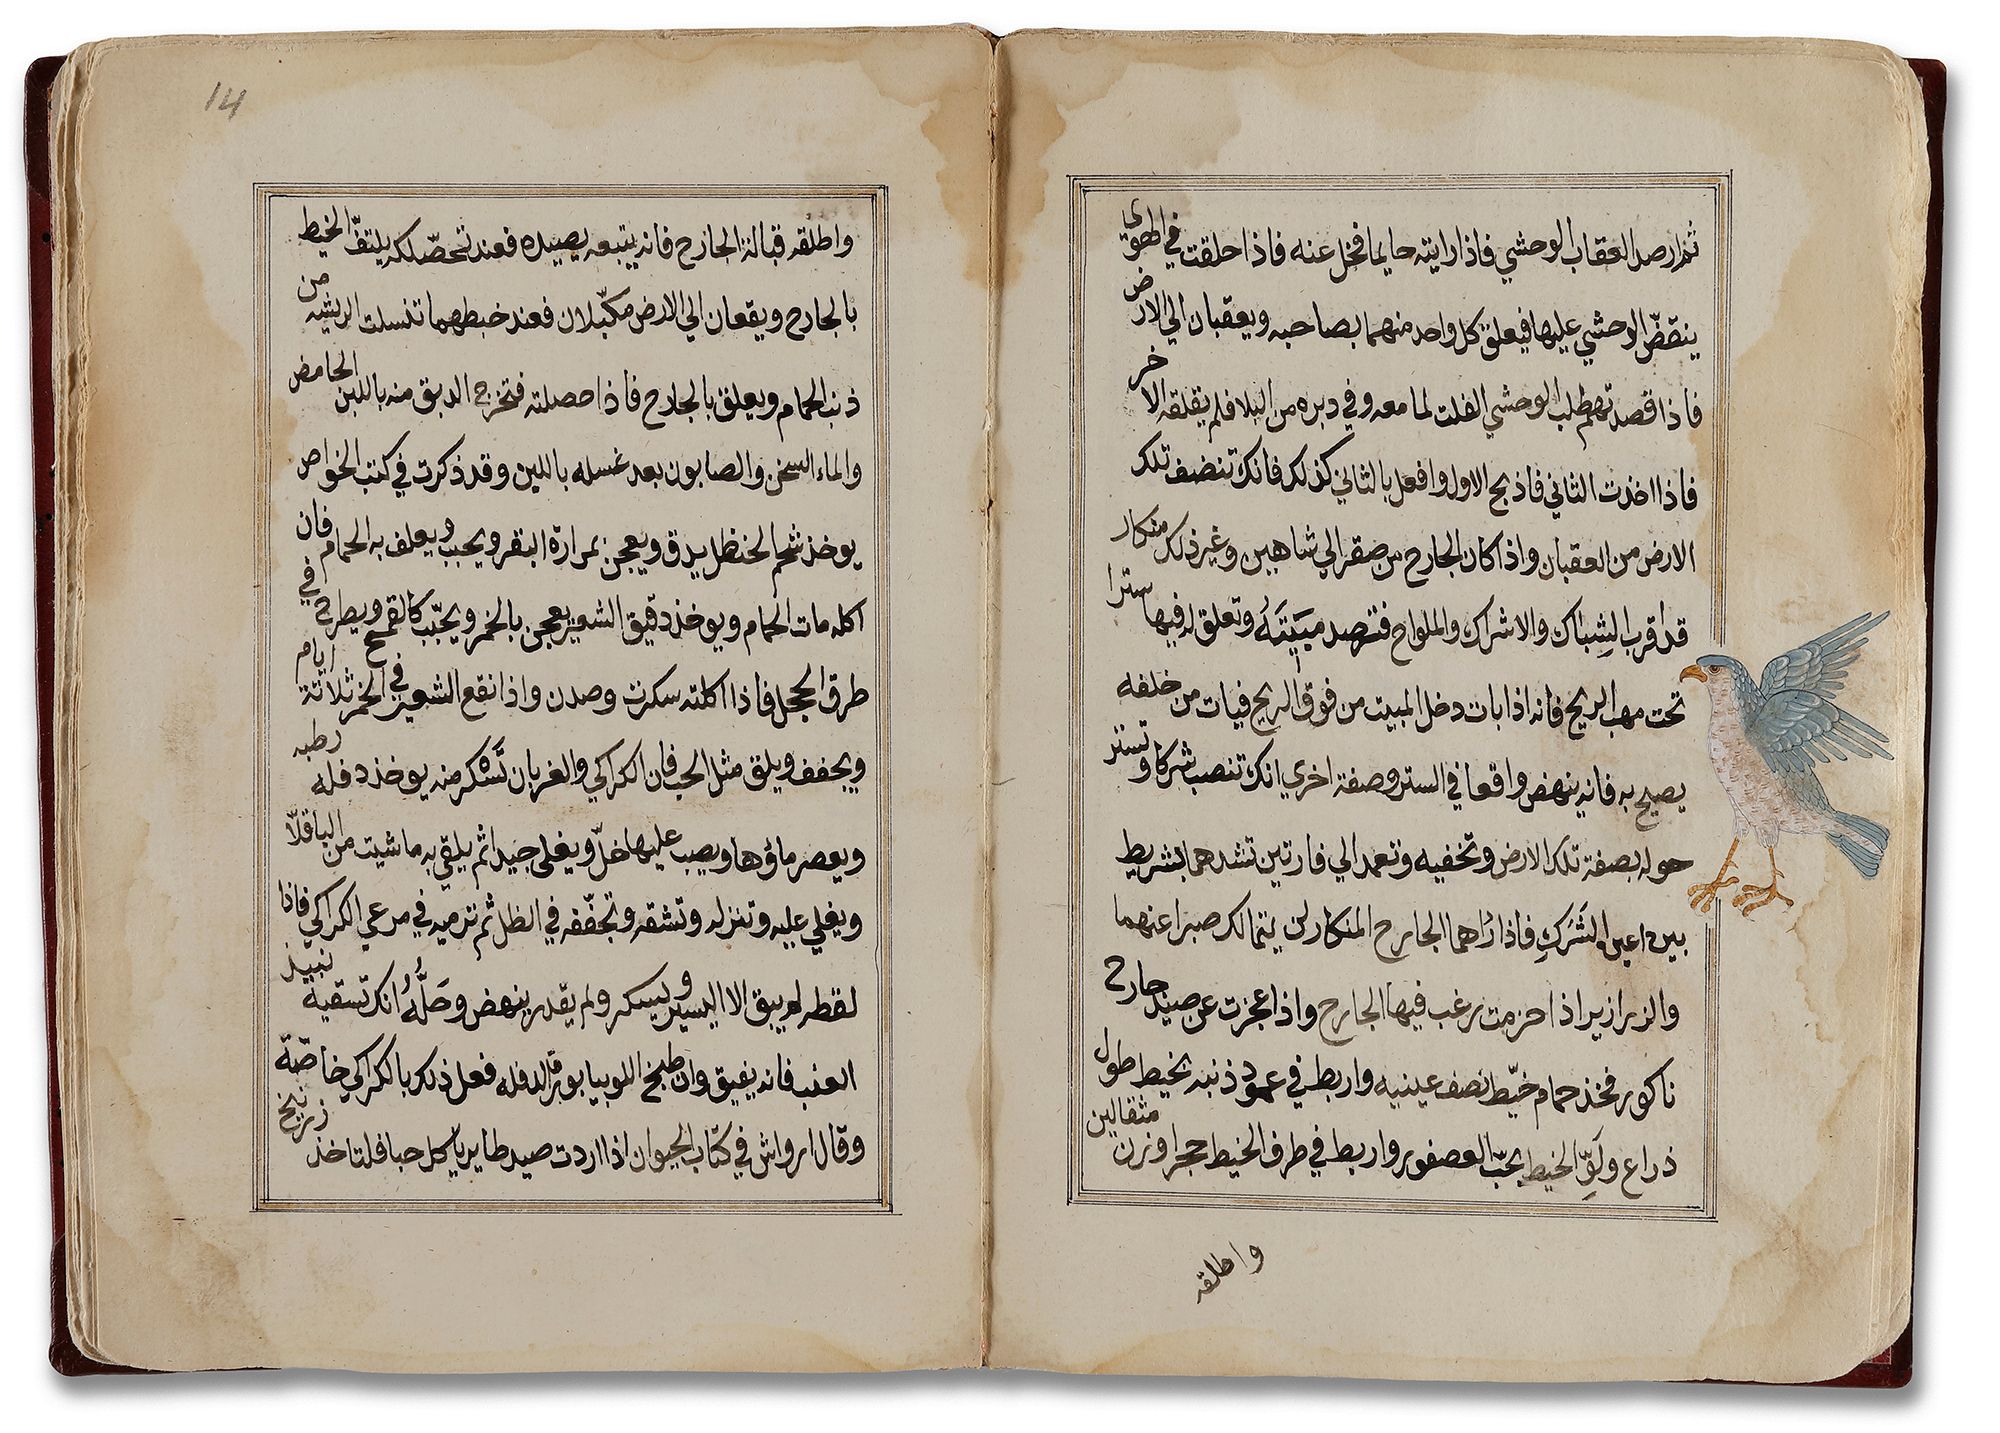 ثم ارصد العقاب الوحشي فاذا رايته حايما فخل عنه فاذا حلقت في الهوى
ينقضّ الوحشي عليها فيعلق كل واحد منهما بصاحبه ويعقبان الي الارض
فاذا قصدتهم طلب الوحشي الفلت لما معه وفي دبره من البلا فلم يقلقه الاخر
فاذا اخذت الثاني فاذبح الاول وافعل بالثاني كذلك فانك تنضف تلك
الارض من العقبان واذا كان الجارح من صقر الي شاهين وغير ذلك منكار
قد اقرب الشِباك والاشراك والملواح فترصد مَبِيَتَهُ وتعلق له فيها سترا
تحت مهب الريح فانه اذا بات دخل المبيت من فوق الريح فيات من خلفه
يصيح به فانه ينهض واقعا في الستر وصفة اخري انك تنصب شركا وتستر
حوله بصفة تلك الارض وتخفيه وتعمد الي فارتين تشدهما بشريط
بين اعين الشَرَكِ فاذا راهما الجارح المنكار لن يتمالك صبرا عنهما
والزرازير اذا حزمت يرغب فيها الجارح واذا عجزت عن صيد جارح
ناكور فخذ حمام خيّط نصف عينيه واربط في عمود ذنبه بخيط طول
ذراع ولوِّ الخيط بحبّ العصفور واربط في طرف الخيط حجرا وزن مثقالين
واطلقه
14
واطلقه قبالة الجارح فانه يتبعه يصيده فعند تحصّلكه يلتفّ الخيط
بالجارح ويقعان الي الارض مكبّلان فعند خبطهما تنسلت الريشه من
ذنب الحمام ويعلق بالجارح فاذا حصلته فتخرج الدبق منه باللبن الحامض
والماء السخن والصابون بعد غسله باللبن وقد ذكرت في كتب الخواص
يوخذ شحم الحنظل يدق ويعجن بمرارة البقر ويحبب ويعلف به الحمام فان
اكله مات الحمام ويوخذ دقيق الشعير يعجن بالخمر ويحبّب كالقمح ويطرح في
طرق الحجل فاذا اكلته سكرت وصدن واذا نقع الشعير في الخمر ثلاثة ايام
ويجفف ويلق مثل الحب فان الكراكي والغربان تَسْكر منه يوخذ دفله رطبه
ويعصر ماؤها ويصب عليها خلّ ويغلي جيدا ثم يلقي به ما شيت من الباقلّا
ويغلي عليه وتنزله وتشقه وتجفّفه في الظل ثم ترميه في مرعي الكراكي فاذا
لقطه لم يبق الا اليسير ويسكر ولم يقدر ينهض وحَلُّهُ انك تسقيه نبيذ
العنب فانه يفيق وان طبخ اللوبيا بورق الدفله فعل ذلك بالكراكي خاصّة
وقال ارواش في كتاب الحيوان اذا اردت صيد طاير ياكل حبا فلتاخذ زرنيخ